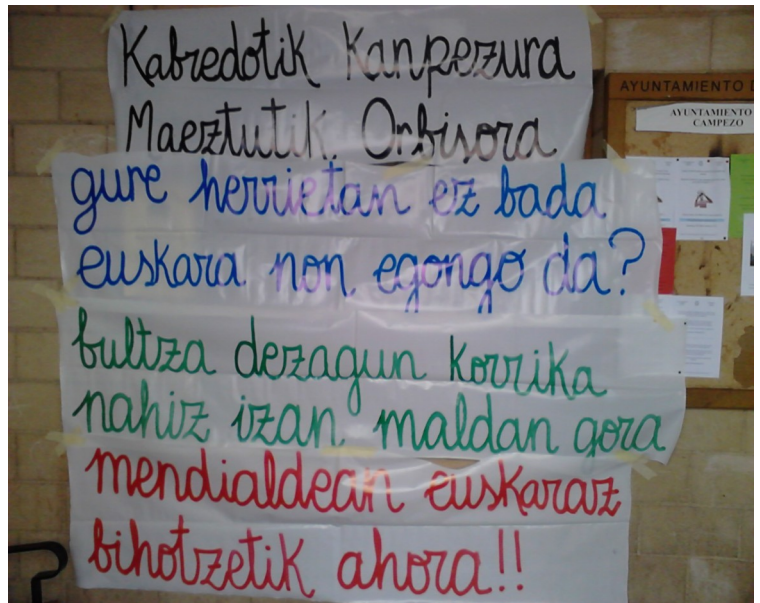 Kabredotik Kanpezura
Maeztutik Orbisora
gure herrietan ez bada
euskara non egongo da?
bultza dezagun Korrika
nahiz izan maldan gora
mendialdean euskaraz
bihotzetik ahora!!
AYUNTAMIENTO
AYUNTAMIENTO
CAMPEZO